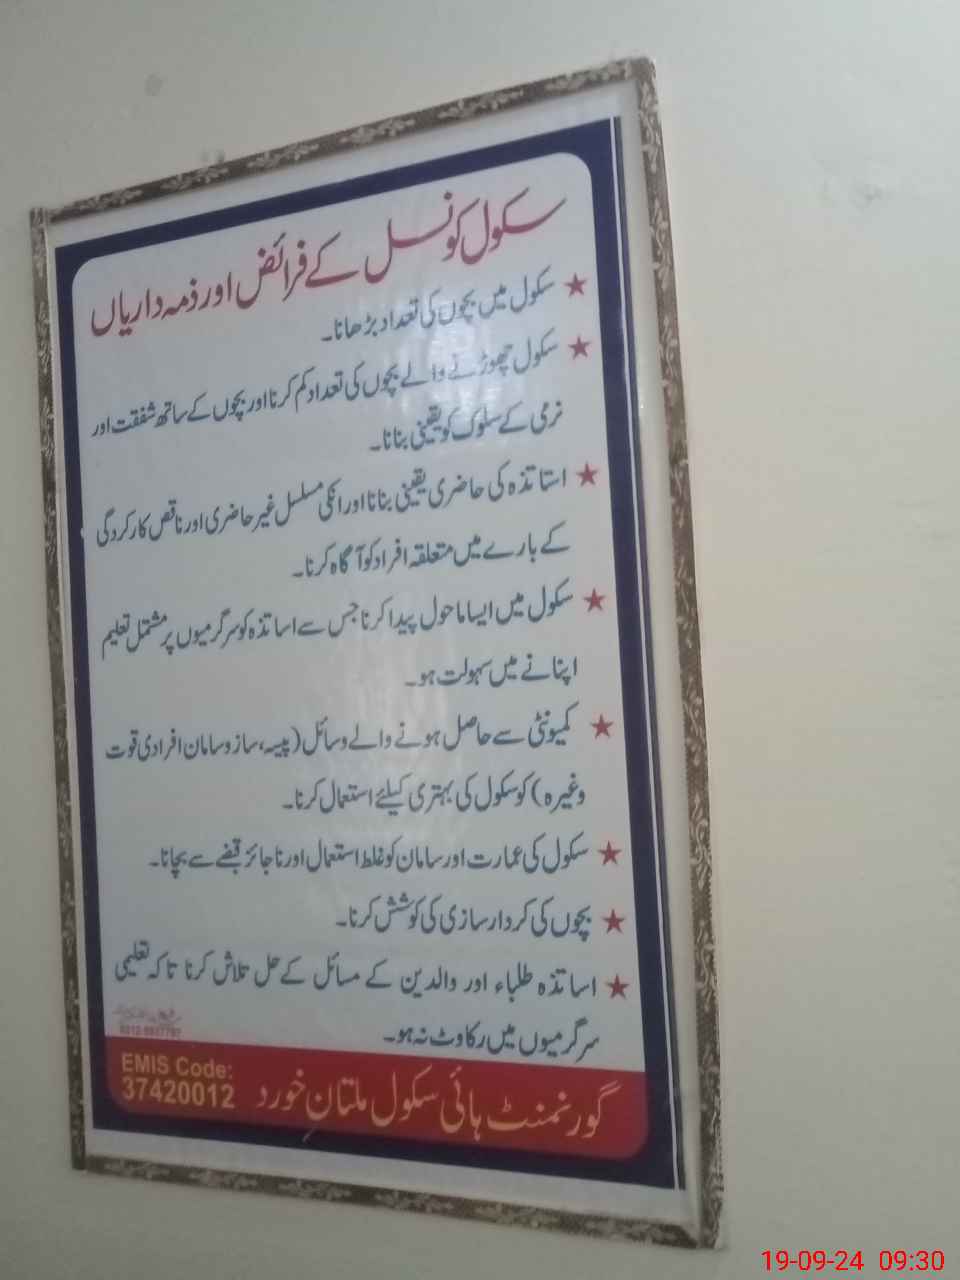 سکول کونسل کے فرائض اور ذمہ داریاں
★ سکول میں بچوں کی تعداد بڑھانا۔
★ سکول چھوڑنے والے بچوں کی تعداد کم کرنا اور بچوں کے ساتھ شفقت اور
نرمی کے سلوک کو یقینی بنانا۔
★ استاتذہ کی حاضری یقینی بنانا اور انکی مسلسل غیر حاضری اور ناقص کارکردگی
کے بارے میں متعلقہ افراد کو آگاہ کرنا۔
★ سکول میں ایسا ماحول پیدا کرنا جس سے اساتذہ کو سرگرمیوں پر مشتمل تعلیم
اپنانے میں سہولت ہو۔
★ کمیونٹی سے حاصل ہونے والے وسائل (پیسہ، ساز و سامان افرادی قوت
وغیرہ) کو سکول کی بہتری کیلئے استعمال کرنا۔
★ سکول کی عمارت اور سامان کو غلط استعمال اور ناجائز قبضے سے بچانا۔
★ بچوں کی کردار سازی کی کوشش کرنا۔
★ اساتذہ طلباء اور والدین کے مسائل کے حل تلاش کرنا تاکہ تعلیمی
سرگرمیوں میں رکاوٹ نہ ہو۔
گورنمنٹ ہائی سکول ملتانِ خورد
EMIS Code:
37420012
19-09-24 09:30